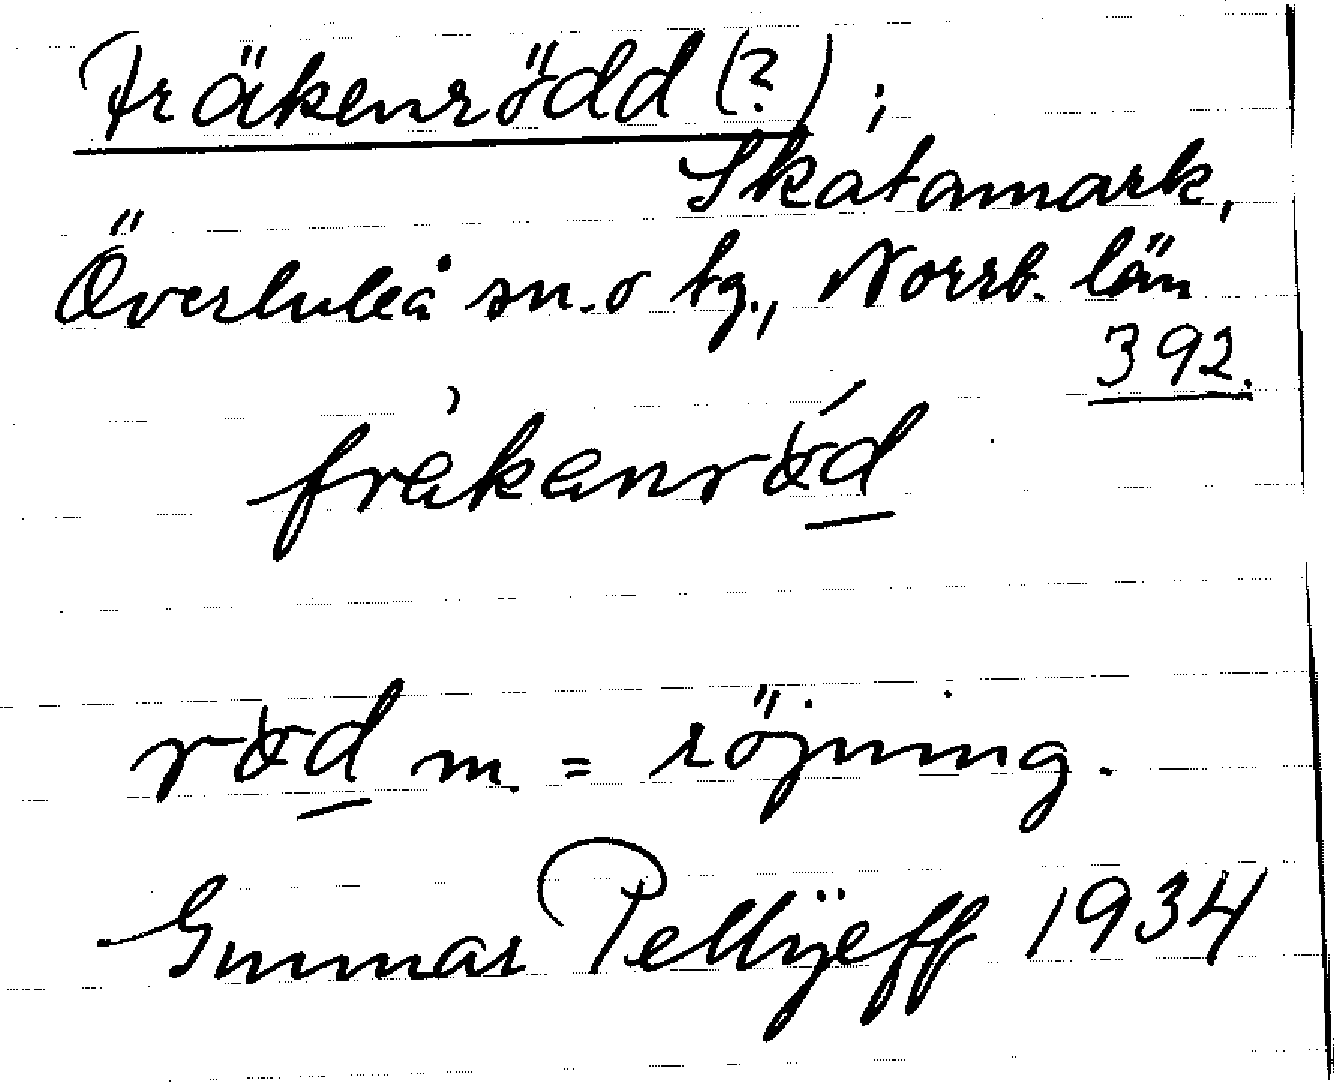 Fräkenrödd (?) ;
Skatamark,
Överluleå sn. o tg., Norrb. län
392.
fräkenröd
röd m. = röjning.
Gunnar Pellijeff 1934